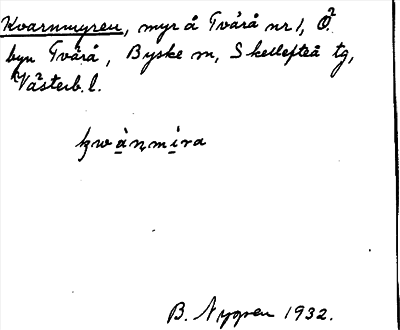 Kvarnmyren, myr å Tvärå nr 1, Ö.
byn Tvärå, Byske sn, Skellefteå tg,
Västerb. l.
kwànmìra
B. Nygren 1932.